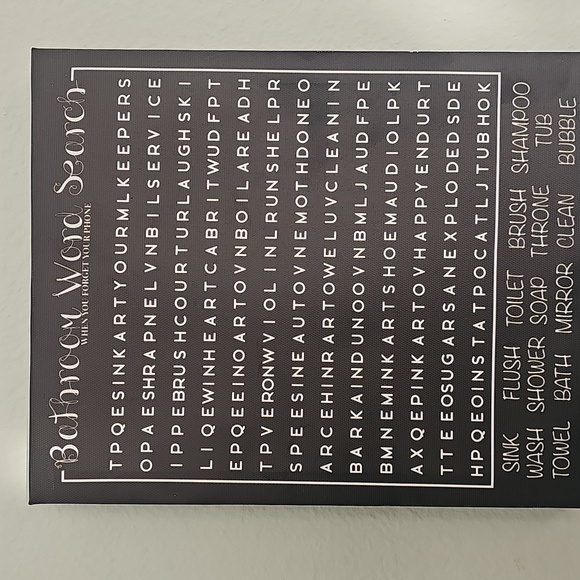 Bathroom Word Search
WHEN YOU FORGET YOUR PHONE
TPQESINKARTYOURMLKEEPERS
OPAESHRAPNELVNBILSERVICE
IPPEBRUSHCOURTURLAUGHSKI
LIQEWINHEARTCABRITWUDFPT
EPQEEINOARTOVNBOILAREADH
TPVERONWVIOLINLRUNSHELPR
SPEESINEAUTOVNEMOTHDONEO
ARCEHINRARTOWELUVCLEANIN
BARKAINDUNOOVNBMLJAUDFPE
BMNEMINKARTSHOEMAUDIOLPK
AXQEPINKARTOVHAPPYENDURT
TTEEOSUGARSANEXPLODEDSDE
HPQEOINSTATPOCATLJTUBHOK
SINK FLUSH TOILET BRUSH SHAMPOO
WASH SHOWER SOAP THRONE TUB
TOWEL BATH MIRROR CLEAN BUBBLE